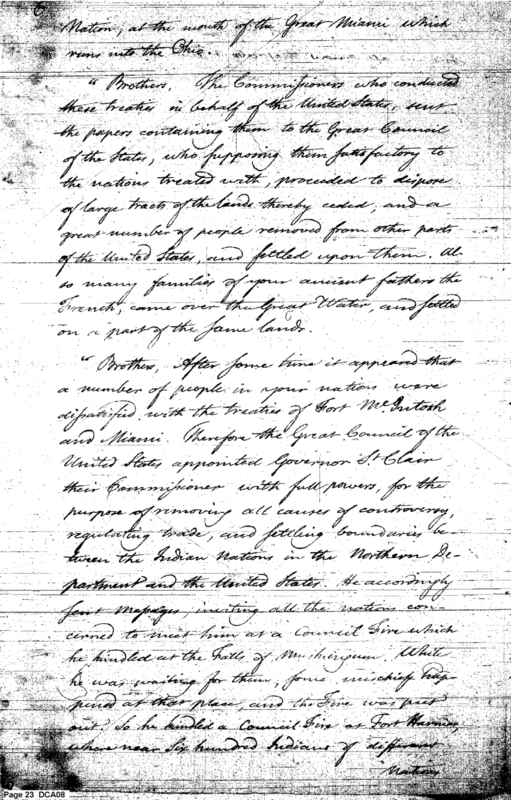 6
Nation, at the mouth of the Great Miami which
runs into the Ohio.
"Brothers, The Commissioners who conducted
these treaties in behalf of the United States, sent
the papers containing them to the Great Council
of the States, who supposing them satisfactory to
the nations treated with, proceeded to dispose
of large tracts of the lands thereby ceded, and a
great number of people removed from other parts
of the United States, and settled upon them. Al-
so many families of your ancient fathers the
French, came over the Great Water, and settled
on a part of the same lands.
"Brothers, After some time it appeared that
a number of people in your nations were
dissatisfied with the treaties of Fort McIntosh
and Miami. Therefore the Great Council of the
United States appointed Governor St Clair
their Commissioner with full powers, for the
purpose of removing all causes of controversy,
regulating trade, and settling boundaries be-
tween the Indian Nations in the Northern De-
partment and the United States. He accordingly
sent messages, inviting all the nations con-
cerned to meet him at a Council Fire which
he kindled at the Falls of Muskingum. While
he was waiting for them, some mischief hap-
pened at that place, and the Fire was put
out. So he kindled a Council Fire at Fort Harmar,
where near Six hundred Indians of different
Nations
Page 23 DCA08